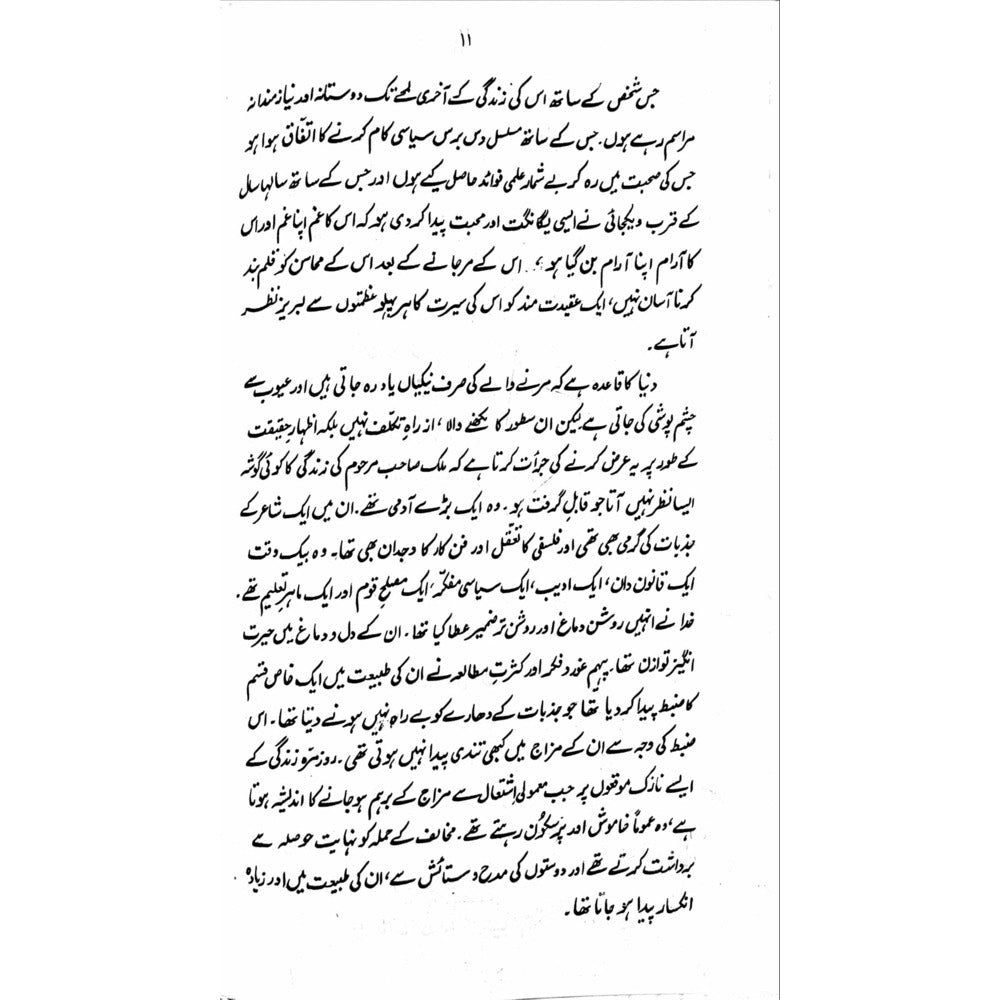 ۱۱
جس شخص کے ساتھ اس کی زندگی کے آخری لمحے تک دوستانہ اور نیاز مندانہ
مراسم رہے ہوں، جس کے ساتھ مسلسل دس برس سیاسی کام کرنے کا اتفاق ہوا ہو
جس کی صحبت میں رہ کر بے شمار علمی فوائد حاصل کیے ہوں اور جس کے ساتھ سالہا سال
کے قرب و یکجائی نے ایسی یگانگت اور محبت پیدا کر دی ہو کہ اس کا غم اپنا غم اور اس
کا آرام اپنا آرام بن گیا ہو، اس کے مر جانے کے بعد اس کے محاسن کو قلم بند
کرنا آسان نہیں، ایک عقیدت مند کو اس کی سیرت کا ہر پہلو عظمتوں سے لبریز نظر
آتا ہے۔
دنیا کا قاعدہ ہے کہ مرنے والے کی صرف نیکیاں یاد رہ جاتی ہیں اور عیوب سے
چشم پوشی کی جاتی ہے لیکن ان سطور کا لکھنے والا، از راہِ تکلف نہیں بلکہ اظہارِ حقیقت
کے طور پر یہ عرض کرنے کی جرأت کرتا ہے کہ ملک صاحب مرحوم کی زندگی کا کوئی گوشہ
ایسا نظر نہیں آتا جو قابلِ گرفت ہو۔ وہ ایک بڑے آدمی تھے۔ ان میں ایک شاعر کے
جذبات کی گرمی بھی تھی اور فلسفی کا تعقّل اور فن کار کا وجدان بھی تھا۔ وہ بیک وقت
ایک قانون دان، ایک ادیب، ایک سیاسی مفکّر، ایک مصلحِ قوم اور ایک ماہرِ تعلیم تھے۔
خدا نے انہیں روشن دماغ اور روشن تر ضمیر عطا کیا تھا۔ ان کے دل و دماغ میں حیرت
انگیز توازن تھا۔ پیہم غور و فکر اور کثرتِ مطالعہ نے ان کی طبیعت میں ایک خاص قسم
کا ضبط پیدا کر دیا تھا جو جذبات کے دھارے کو بے راہ نہیں ہونے دیتا تھا۔ اس
ضبط کی وجہ سے ان کے مزاج میں کبھی تندی پیدا نہیں ہوتی تھی۔ روزمرّہ زندگی کے
ایسے نازک موقعوں پر جب معمولی اشتعال سے مزاج کے برہم ہو جانے کا اندیشہ ہوتا
ہے، وہ عموماً خاموش اور پرسکون رہتے تھے۔ مخالف کے حملہ کو نہایت حوصلہ سے
برداشت کرتے تھے اور دوستوں کی مدح و ستائش سے، ان کی طبیعت میں اور زیادہ
انکسار پیدا ہو جاتا تھا۔